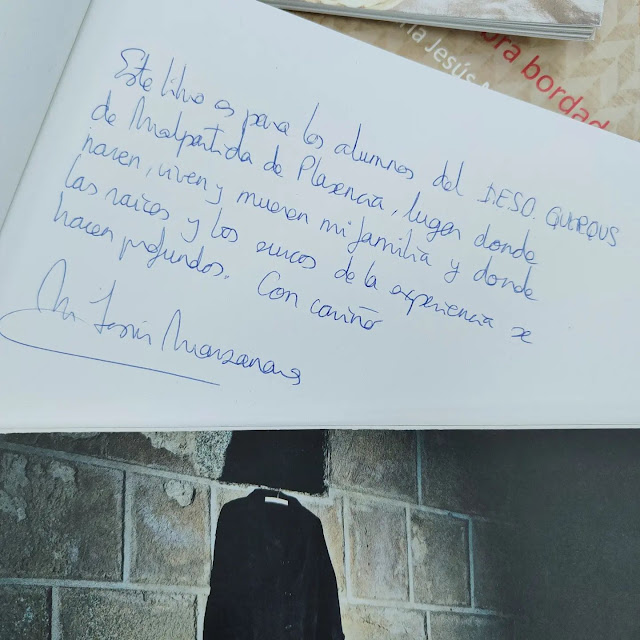 ora bordad
ía Jesús M
Este libro es para los alumnos del I.E.S.O. QUERCUS
de Malpartida de Plasencia, lugar donde
nacen, viven y mueren mi familia y donde
las raíces y los surcos de la experiencia se
hacen profundos. Con cariño
Mª Jesús Manzanares